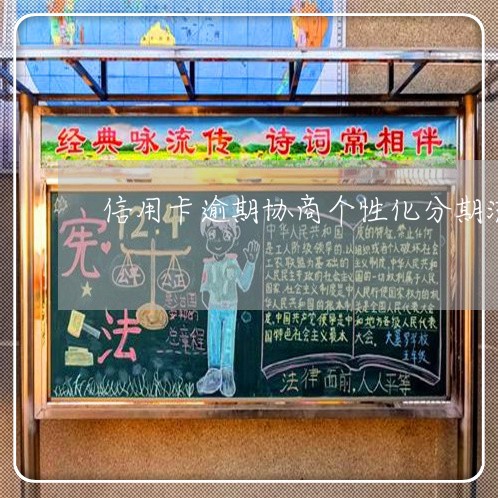 经典咏流传 诗词常相伴
信用卡逾期协商个性化分期
宪法
12.4
公平
公正
总章程
中华人民共和国
是工人阶级领导的,以
工农联盟为基础的
人民民主专政的社会主义
国家,社会主义制度是中
华人民共和国的根本制
度,中国共产党领导是中
国特色社会主义最本
质的特征,禁止任何
组织或者个人破坏社会
主义制度,中华人民共和
国的一切权利属于人民,
人民行使国家权力的机
关是全国人民代表大会
和地方各级人民代表
大会。
五年级
法律面前,人人平等